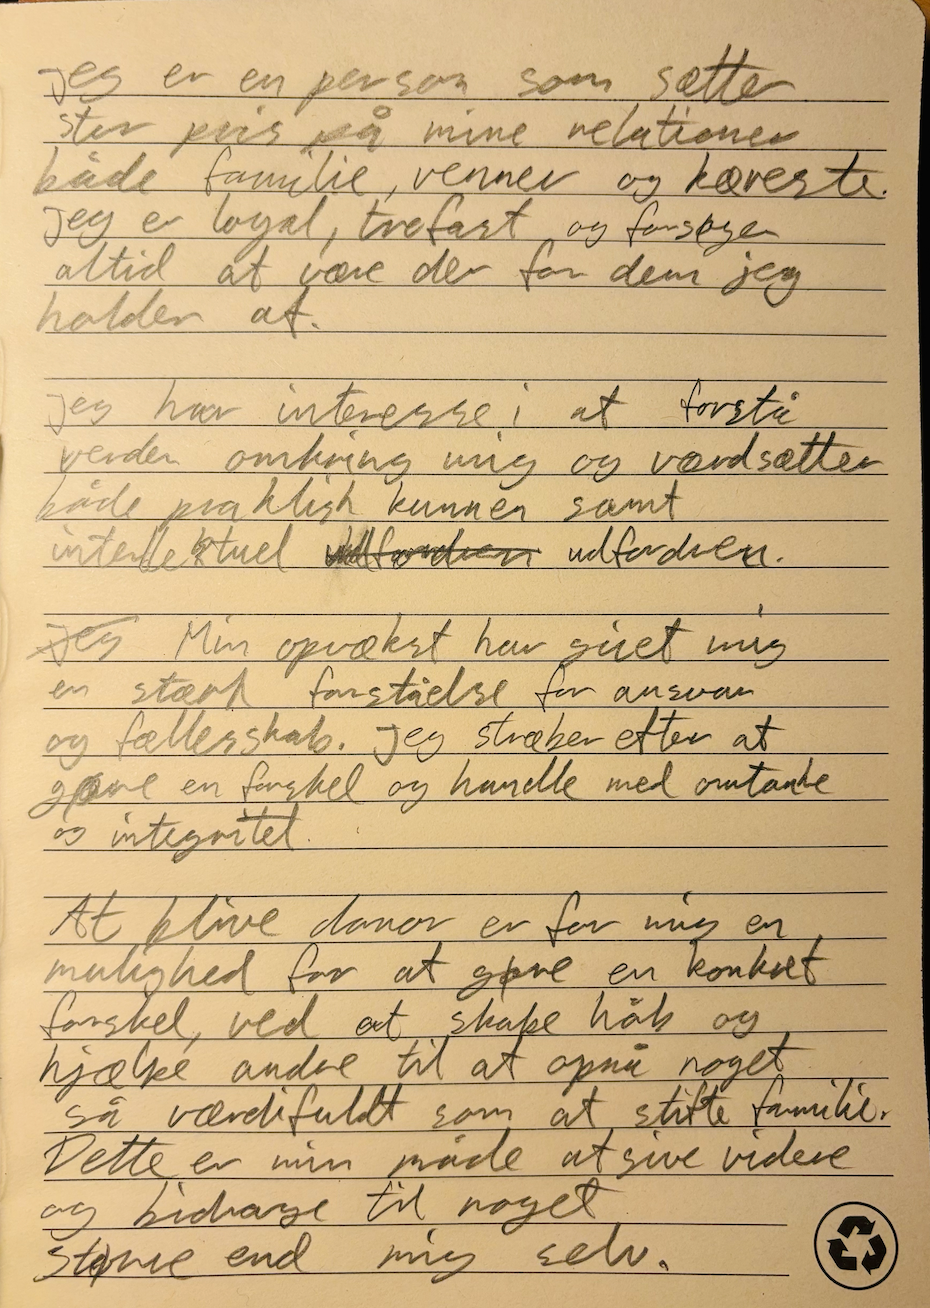 Jeg er en person som sætter
stor pris på mine relationer
både familie, venner og kæreste.
Jeg er loyal, trofast og forsøger
altid at være der for dem jeg
holder af.
Jeg har interesse i at forstå
verden omkring mig og værdsætter
både praktisk kunnen samt
intellektuel udfordren udfordren.
Jeg Min opvækst har givet mig
en stærk forståelse for ansvar
og fællesskab. Jeg stræber efter at
gøre en forskel og handle med omtanke
og integritet.
At blive donor er for mig en
mulighed for at gøre en konkret
forskel, ved at skabe håb og
hjælpe andre til at opnå noget
så værdifuldt som at stifte familie.
Dette er min måde at give videre
og bidrage til noget
større end mig selv.